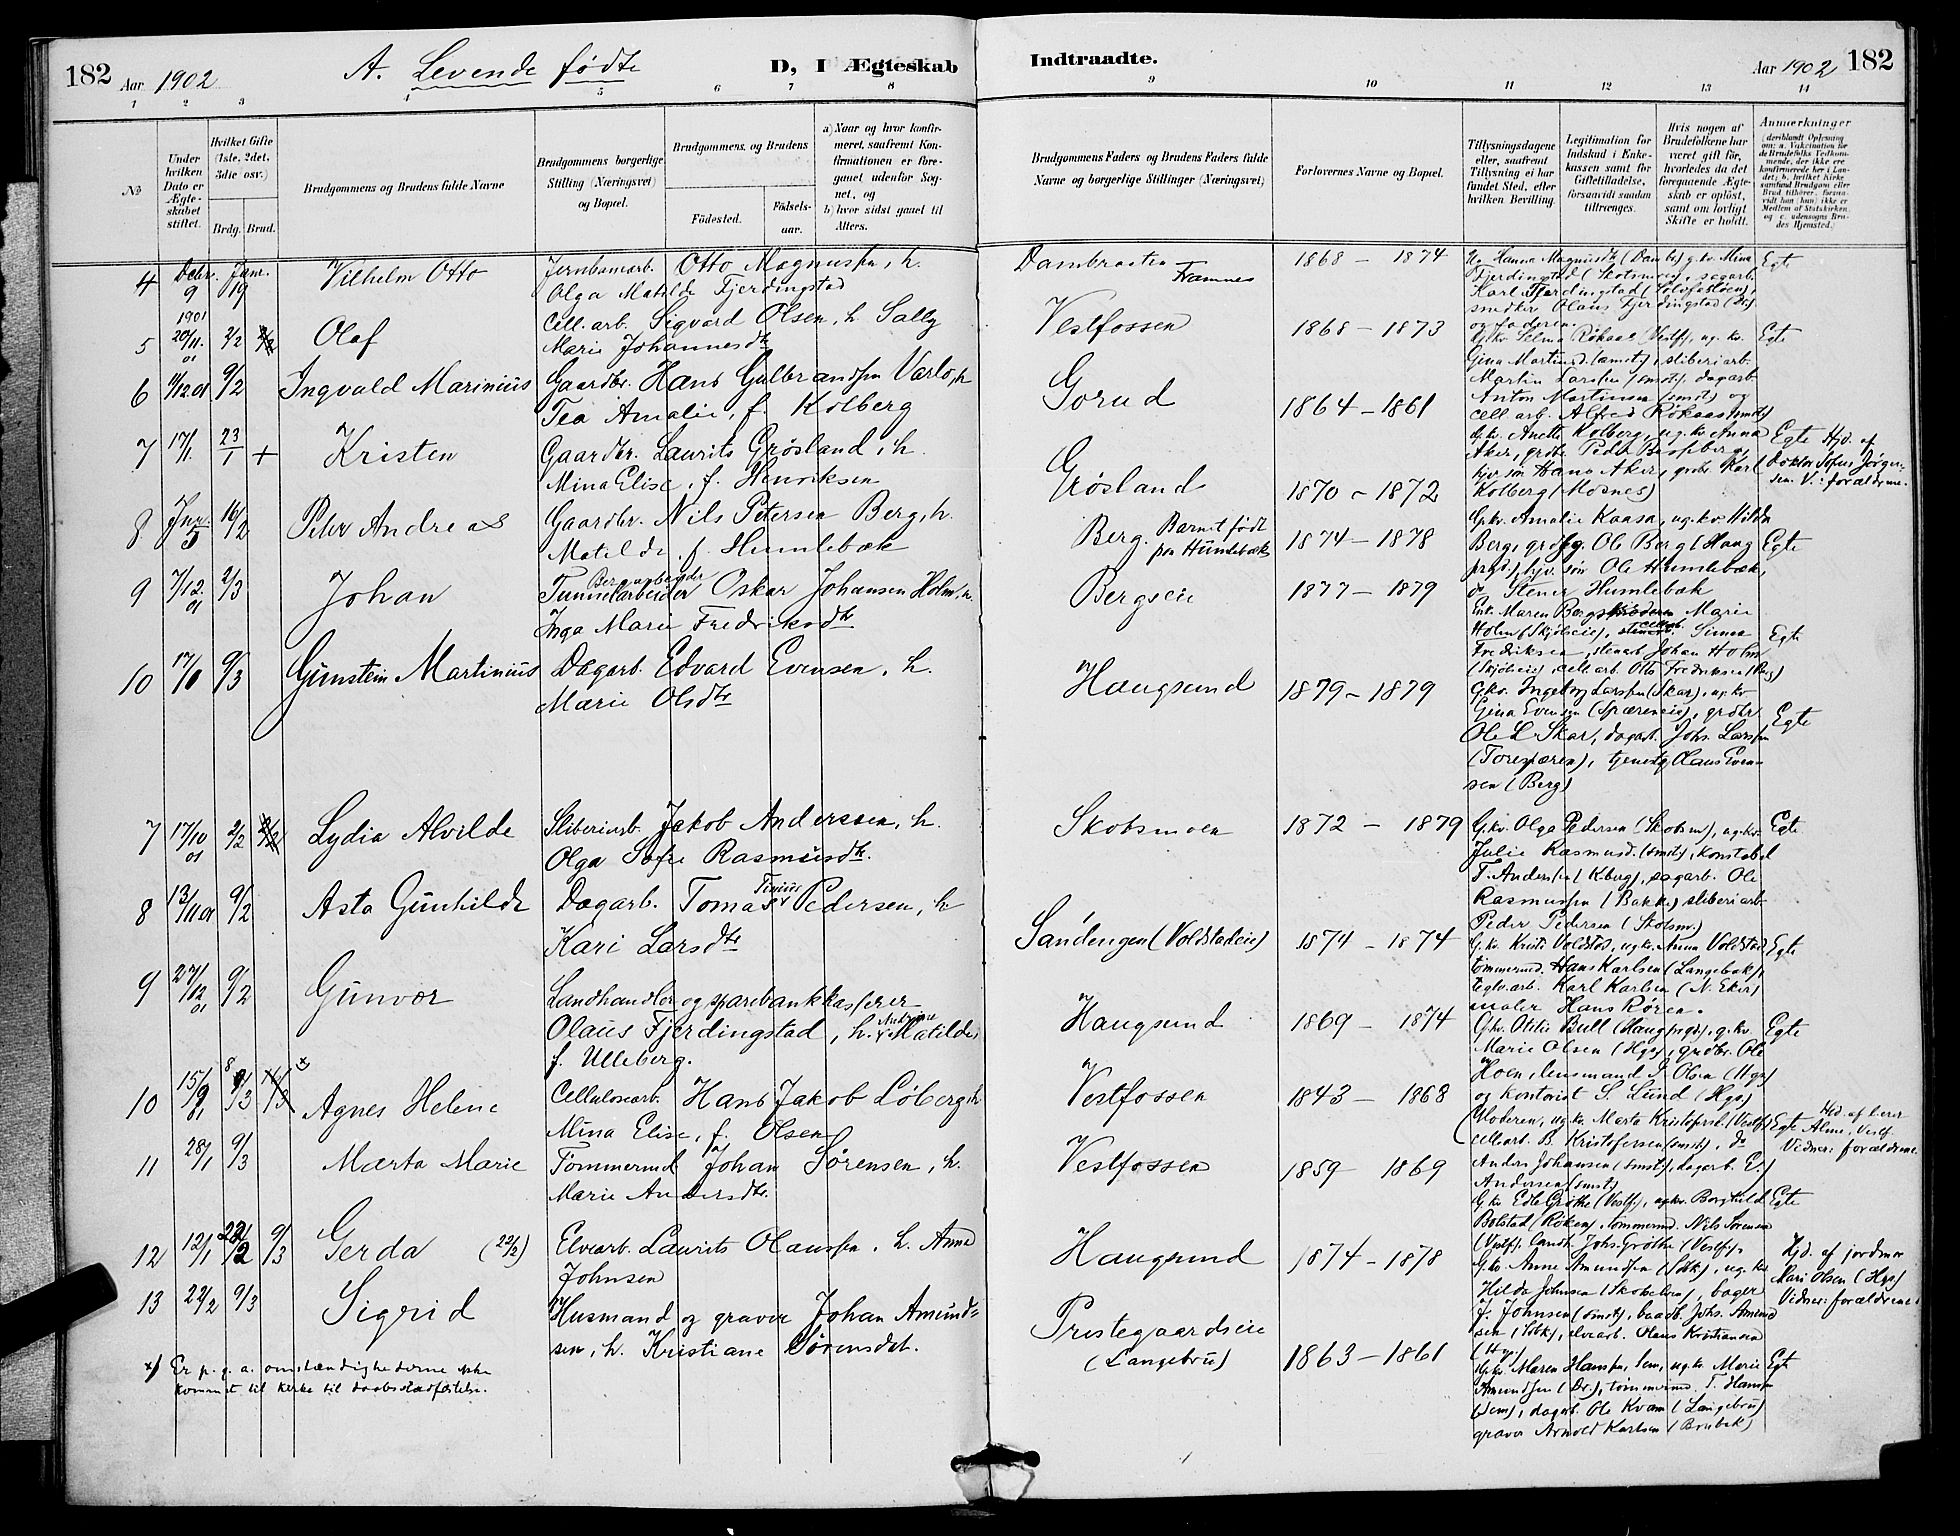 182 Aar 1902 A. Levende fødte D, I Ægteskab
Indtraadte. Aar 1902 182
1 2 3 4 5 6 7 8
9 10 11 12 13 14
№
Under hvilken Dato er Ægteskabet stiftet.
Hvilket Gifte (1ste, 2det, 3die osv.)
Brdg. Brud.
Brudgommens og Brudens fulde Navne
Brudgommens borgerlige Stilling (Næringsvei) og Bopæl.
Brudgommens og Brudens
Fødested.
Fødselsaar.
a) Naar og hvor konfirmeret, saafremt Konfirmationen er foregaaet udenfor Sognet, og
b) hvor sidst gaaet til Alters.
Brudgommens Faders og Brudens Faders fulde Navne og borgerlige Stillinger (Næringsvei)
Forlovernes Navne og Bopæl.
Tillysningsdagene eller, saafremt Tillysning ei har fundet Sted, efter hvilken Bevilling.
Legitimation for Indskud i Enkekassen samt for Giftetilladelse, forsaavidt saadan tiltrænges.
Hvis nogen af Brudefolkene har været gift før, hvorledes da det foregaaende Ægteskab er opløst, samt om lovligt Skifte er holdt.
Anmærkninger
4 Decbr. 9 1901 Jan. 19 Vilhelm Otto Jernbanearb. Otto Magnussen, h.
Olga Matilde Fjerdingstad
Dambraaten Framnes 1868 – 1874
Karl Fjerdingstad
smedker Olaus Fjerdingstad
og faderen. Egte
5 20/11 01 2/2 Olaf Cell. arb. Sigvard Olsen, h. Sally
Marie Johannesdtr
Vestfossen 1868 – 1873 Egte
Martin Larssen (smst), dagarb.
Anton Martinsen (smst) og
cell. arb. Alfred Røkaas (smst)
6 11/12 01 9/2 Ingvald Marinius Gaardbr. Hans Gulbrandssen Varlo, h
Tea Amalie, f. Kolberg
Gorud 1864 – 1861
G.kv. Anette Kolberg, ug.kv. Anna
Kolberg (Mosnes)
7 17/1 23/1 + Kristen Gaardbr. Laurits Grøsland, h.
Mina Elise, f. Henriksen
Grøsland 1870 – 1872
Egte Hjd. af
Doktor Sofus Jørgensen. V.: forældrene.
8 Jan. 5 16/2 Peter Andreas Gaardbr. Nils Petersen Berg, h.
Matilde, f. Humlebæk
Berg. Barnet født
paa Humlebæk 1874 – 1878
G.kv. Amalie Kaasa, ug.kv. Hilda
Berg, Ole Berg (Haug
prgd), Ole Humlebæk,
Stener Humlebæk Egte
9 7/12 01 2/3 Johan Bergarbeider Oskar Johansen Holm, h.
Inga Marie Fredriksdtr
Bergseie 1877 – 1879
Johan Holm
cell. arb. Otto Fredriksen Egte
10 17/10 9/3 Gunstein Martinius Dagarb. Edvard Evensen, h.
Marie Olsdtr
Haugsund 1879 – 1879
G.kv. Ingeborg Larssen (Skar), ug.kv
Gina Evensen (Spæreneie), grdbr
Ole L Skar, dagarb. Johs. Larssen
tjenestg Olaus Evensen (Berg) Egte
7 17/10 01 2/2 Lydia Alvilde Sliberiarb. Jakob Anderssen, h.
Olga Sofie Rasmusdtr.
Skotsmoen 1872 – 1879
G.kv. Olga Pedersen (Skotsm), ug.kv.
Julie Rasmusd. (smst), konstabel
T. Andersen (Kberg), sagarb. Ole
Rasmussen (Bakke) sliberiarb
Peder Pedersen (Skotsm) Egte
8 13/11 01 9/2 Asta Gunhilde Dagarb. Tomas Tinius Pedersen, h
Kari Larsdtr
Sandengen (Voldstadeie) 1874 – 1874
Anna Voldstad
tømmermd. Hans Karlsen (Langebak),
Teglv.arb. Karl Karlsen (N. Eker)
maler Hans Røren. Egte
9 27/12 01 9/2 Gunvor Landhandler og sparebankkasserer
Olaus Fjerdingstad, h. Andrine Matilde,
f. Ulleberg.
Haugsund 1869 – 1874
G.kv. Otilie Bull (Haug prgd), g.kv.
Marie Olsen (Hgs), grdbr. Ole
Hoen, lensmand S. Olsen (Hgs)
og kontorist S. Lund (Hgs) Egte
10 15/9 01 9/3 Agnes Helene Cellulosearb. Hans Jakob Løberg, h
Mina Elise, f. Olsen
Vestfossen 1843 – 1868
Moderen, ug.kv. Marta Kristofersd. (Vestf)
cell.arb. B. Kristofersen (smst), do
Anders Johansen (smst), dagarb. E.
Andersen (smst)
Egte Hjd. af lærer
Alme, Vestf.
Vidner: forældrene.
11 28/1 9/3 Marta Marie Tømmermd Johan Sørensen, h.
Marie Andersdtr.
Vestfossen 1859 – 1869
G.kv. Edle Grøthe (Vestf), ug.kv. Borghild
Bolstad (Røken), tømmermd. Nils Sørensen
(Vestf), landh. Johs. Grøthe (Vestf). Egte
12 12/1 22/2 9/3 Gerda (22/2) Elvearb. Laurits Olaussen, h. Anna
Johnsen
Haugsund 1874 – 1878
G.kv. Anne Amundsen, ug. kv
Hilda Johnsen, bager
J. Johnsen (smst), baadb. Johs. Amundsen, elvearb. Olaus Kristiansen
(Hgs)
Hjd. af jordmor
Mari Olsen (Hgs)
Vidner: forældrene.
13 22/2 9/3 Sigrid Husmand og graver Johan Amundsen, h. Kristiane Sørensdtr.
Prestegaardseie
(Langebru) 1863 – 1861
G.kv. Maren Hanssen, Sem, ug.kv. Marie
Amundsen (Dr.), tømmermd. T. Hanssen
(Sem), dagarb. Ole Kvam (Langebru)
graver Arnold Karlsen (Brubak) Egte
x) Er p. g. a. omstændighederne ikke
kommet til kirke til daabsstadfæstelse.